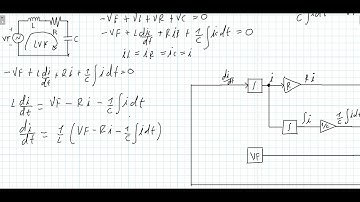 L
R
VF
LVK
C
-VF + VL + VR + VC = 0
-VF + L di/dt + RiR + 1/C ∫i dt = 0
iL = iR = iC = i
-VF + L di/dt + Ri + 1/C ∫i dt = 0
L di/dt = VF - Ri - 1/C ∫i dt
di/dt = 1/L (VF - Ri - 1/C ∫i dt)
C ∫i dt
di/dt
∫
i
R
Ri
∫
∫i
1/C
1/C ∫i dt
VF